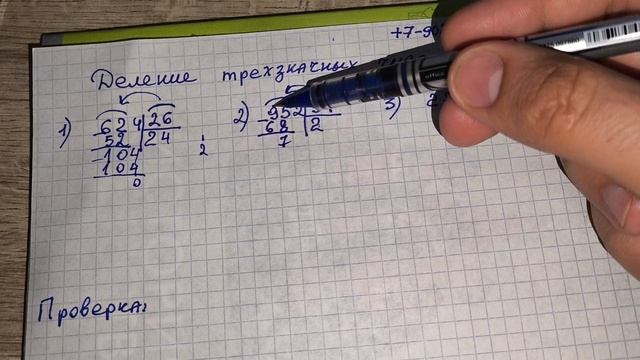 +7-90
Деление трехзначных
1) 624 26
52 24
104
104
0
1
2
2) 952
68 2
7
3) 2
Проверка:
office